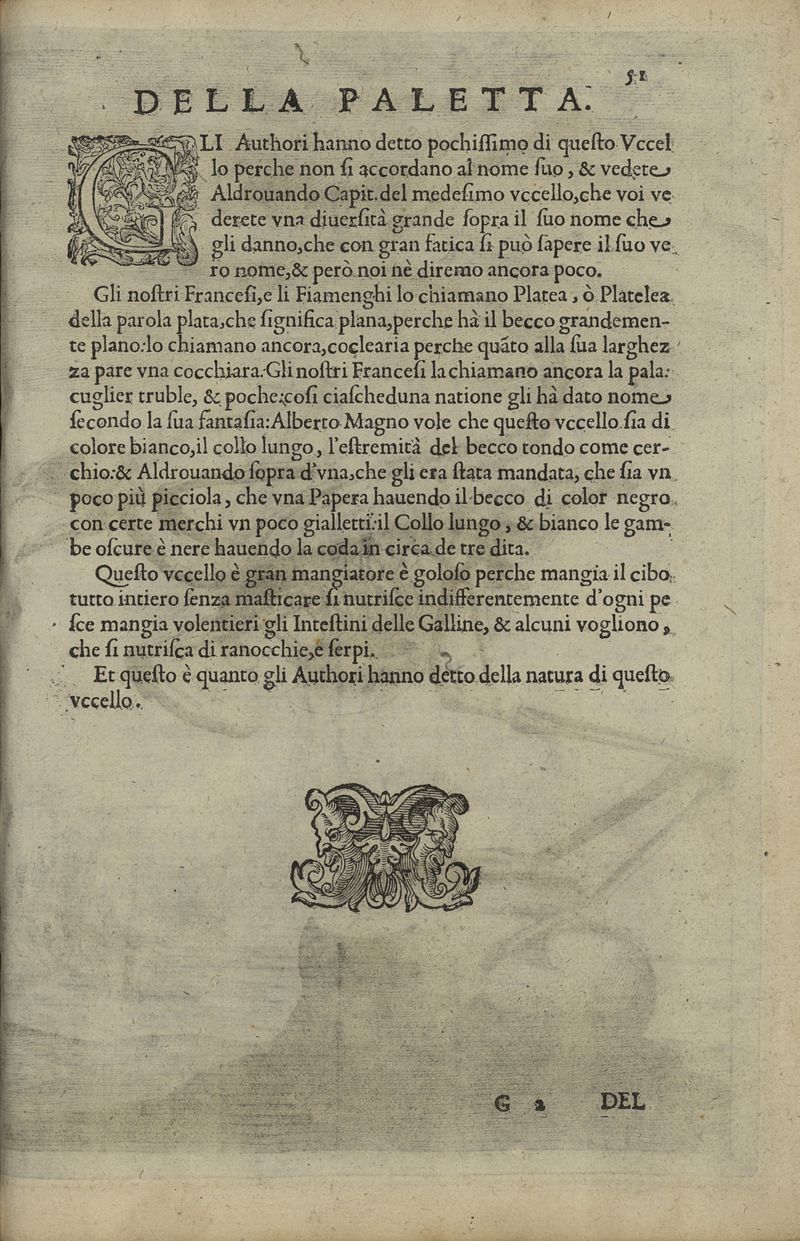 51
DELLA PALETTA.
GLI Authori hanno detto pochiſſimo di queſto Vccel
lo perche non ſi accordano al nome ſuo, & vedete
Aldrouando Capit. del medeſimo vccello, che voi ve
derete vna diuerſità grande ſopra il ſuo nome che
gli danno, che con gran fatica ſi può ſapere il ſuo ve
ro nome, & però noi nè diremo ancora poco.
Gli noſtri Franceſi, e li Fiamenghi lo chiamano Platea, ò Platelea
della parola plata, che ſignifica plana, perche hà il becco grandemen-
te plano: lo chiamano ancora, coclearia perche quãto alla ſua larghez
za pare vna cocchiara. Gli noſtri Franceſi la chiamano ancora la pala:
cuglier truble, & poche; coſi ciaſcheduna natione gli hà dato nome
ſecondo la ſua fantaſia: Alberto Magno vole che queſto vccello ſia di
colore bianco, il collo lungo, l'eſtremità del becco tondo come cer-
chio: & Aldrouando ſopra d'vna, che gli era ſtata mandata, che ſia vn
poco più picciola, che vna Papera hauendo il becco di color negro
con certe merchi vn poco gialletti: il Collo lungo, & bianco le gam-
be oſcure è nere hauendo la coda in circa de tre dita.
Queſto vccello è gran mangiatore è goloſo perche mangia il cibo
tutto intiero ſenza maſticare ſi nutriſce indifferentemente d'ogni pe
ſce mangia volentieri gli Inteſtini delle Galline, & alcuni vogliono,
che ſi nutriſca di ranocchie, e ſerpi.
Et queſto è quanto gli Authori hanno detto della natura di queſto
vccello.
G 2 DEL